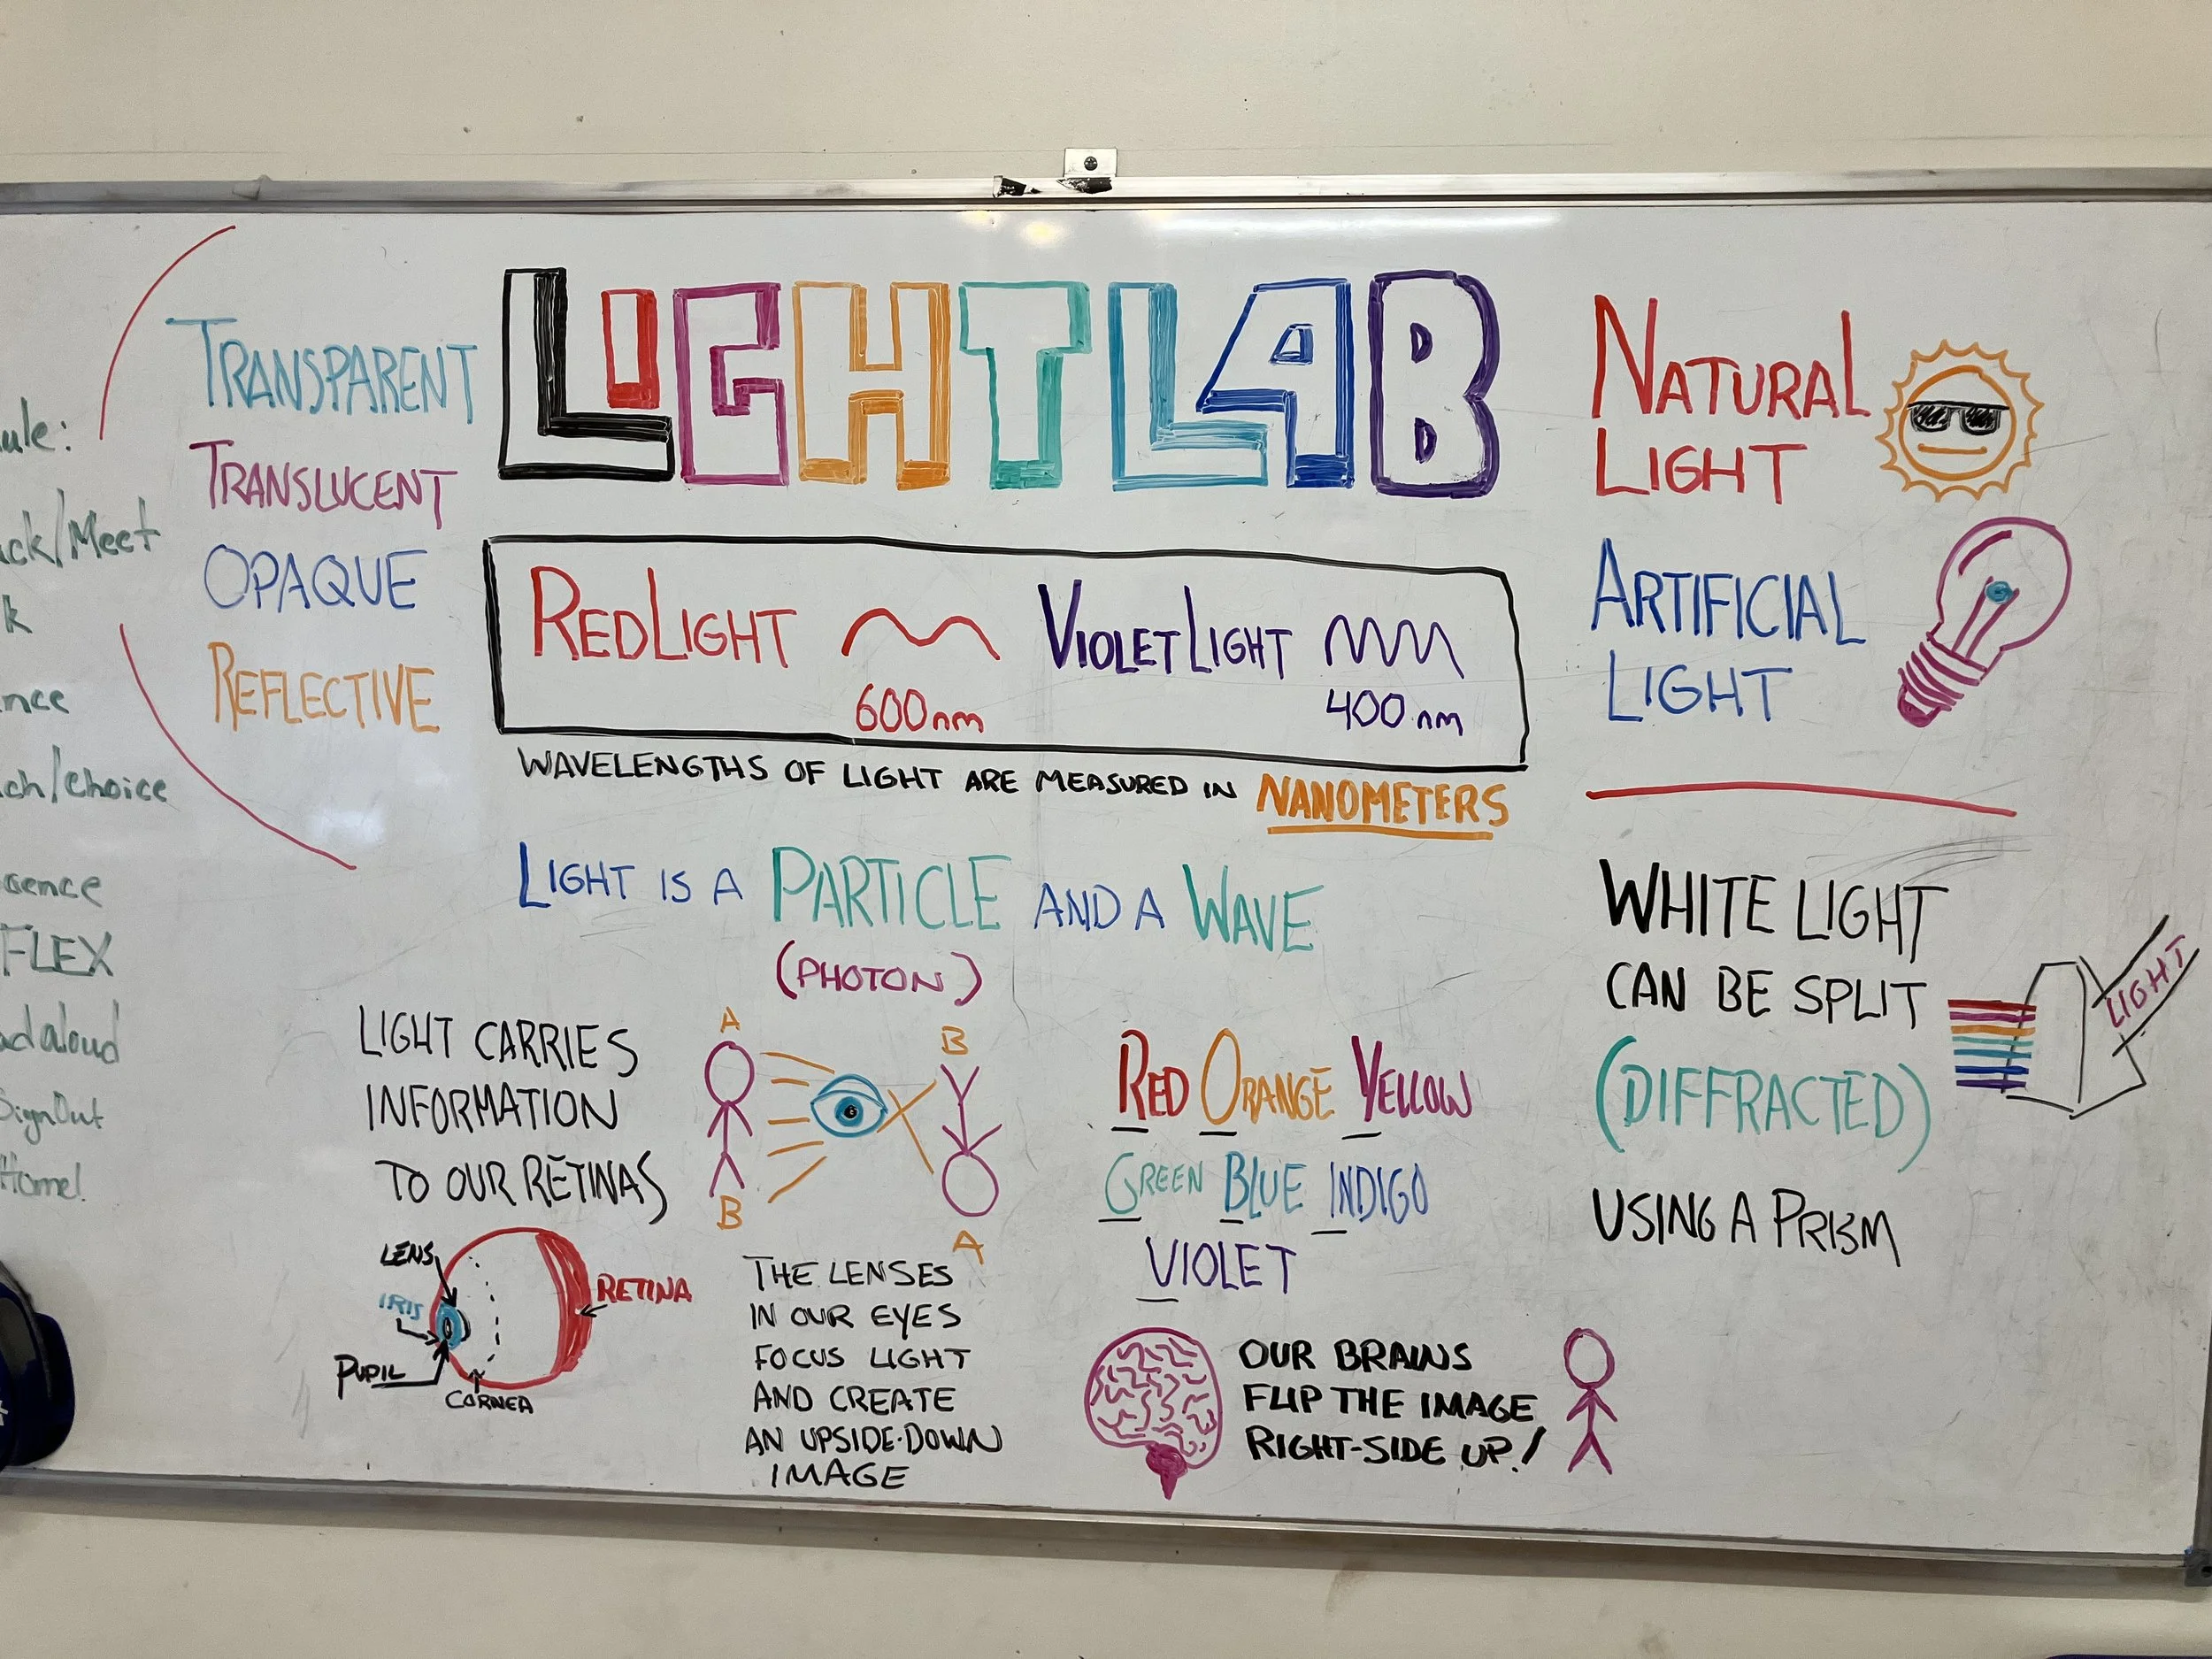 LIGHT LAB
TRANSPARENT
TRANSLUCENT
OPAQUE
REFLECTIVE
ule:
ck/Meet
k
nce
ch/choice
FLEX
adaloud
SignOut
Home!
RED LIGHT
600nm
VIOLET LIGHT
400nm
WAVELENGTHS OF LIGHT ARE MEASURED IN NANOMETERS
LIGHT IS A PARTICLE AND A WAVE
(PHOTON)
LIGHT CARRIES
INFORMATION
TO OUR RETINAS
A
B
B
A
LENS
IRIS
PUPIL
CORNEA
RETINA
THE LENSES
IN OUR EYES
FOCUS LIGHT
AND CREATE
AN UPSIDE-DOWN
IMAGE
RED ORANGE YELLOW
GREEN BLUE INDIGO
VIOLET
OUR BRAINS
FLIP THE IMAGE
RIGHT-SIDE UP!
NATURAL
LIGHT
ARTIFICIAL
LIGHT
WHITE LIGHT
CAN BE SPLIT
(DIFFRACTED)
USING A PRISM
LIGHT